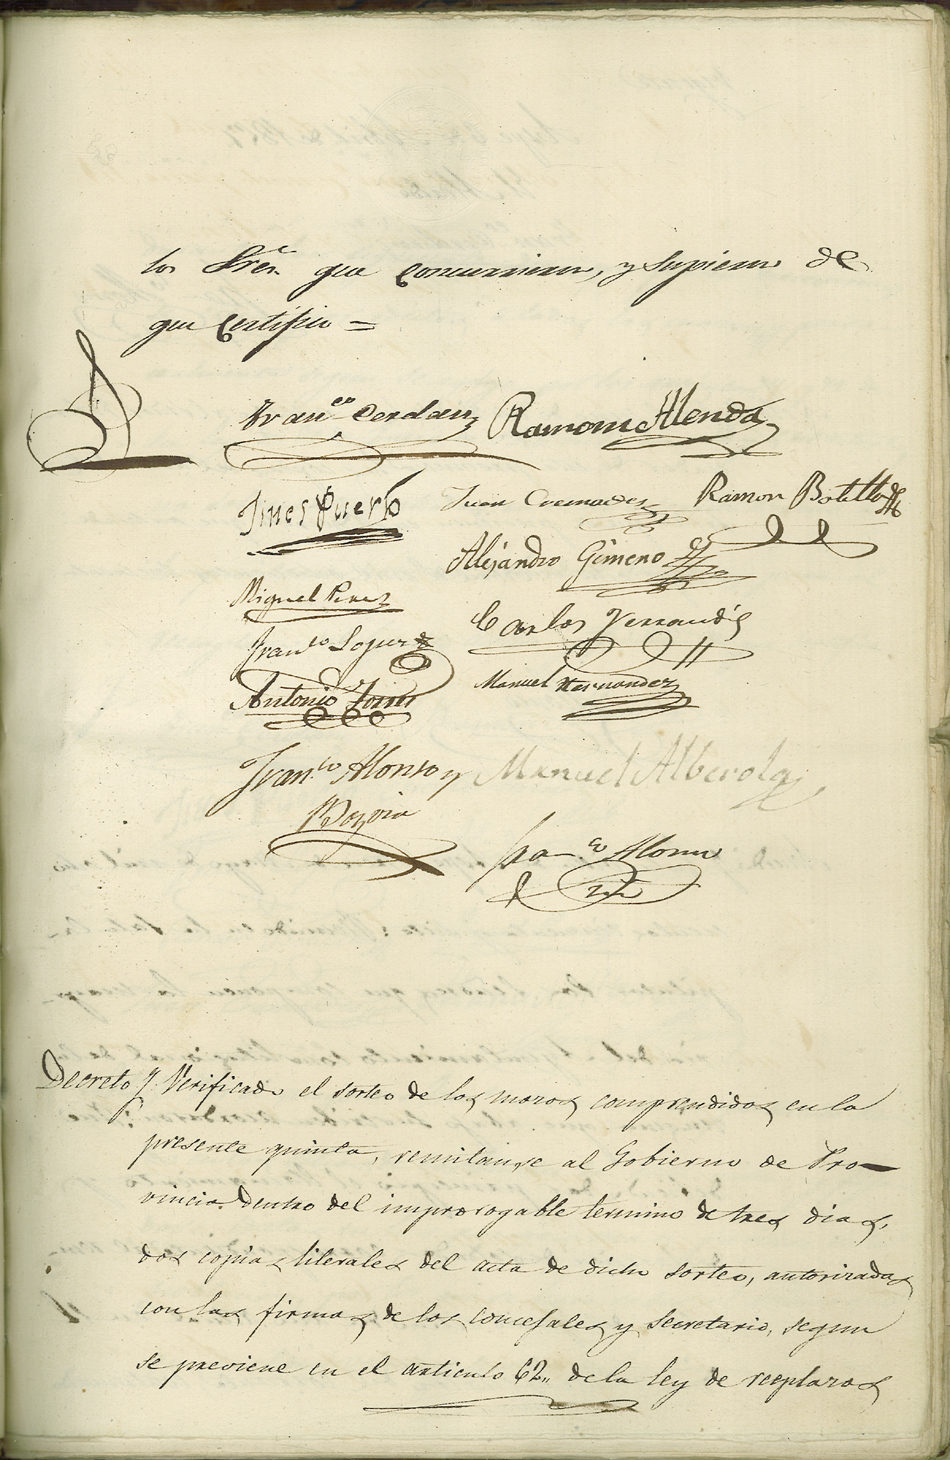 los Sres. que concurrieron, y supieron de
que certifico =
Franco. Cerdan Ramon Alenda
Jines Puerto Juan Cremades Ramon Botella
Alejandro Gimeno
Miguel Perez
Carlos Fernandez
Franco. Lopez
Manuel Hernandez
Antonio Torres
Franco. Alonso y Manuel Alberola
Franco. Alonso
Decreto Verificado el sorteo de los mozos comprendidos en la
presente quinta, remitanse al Gobierno de Pro-
vincia dentro del improrogable termino de tres dias,
dos copias literales del acta de dicho sorteo, autorizadas
con las firmas de los concejales y secretario, segun
se previene en el articulo 62,, de la ley de reeplazos